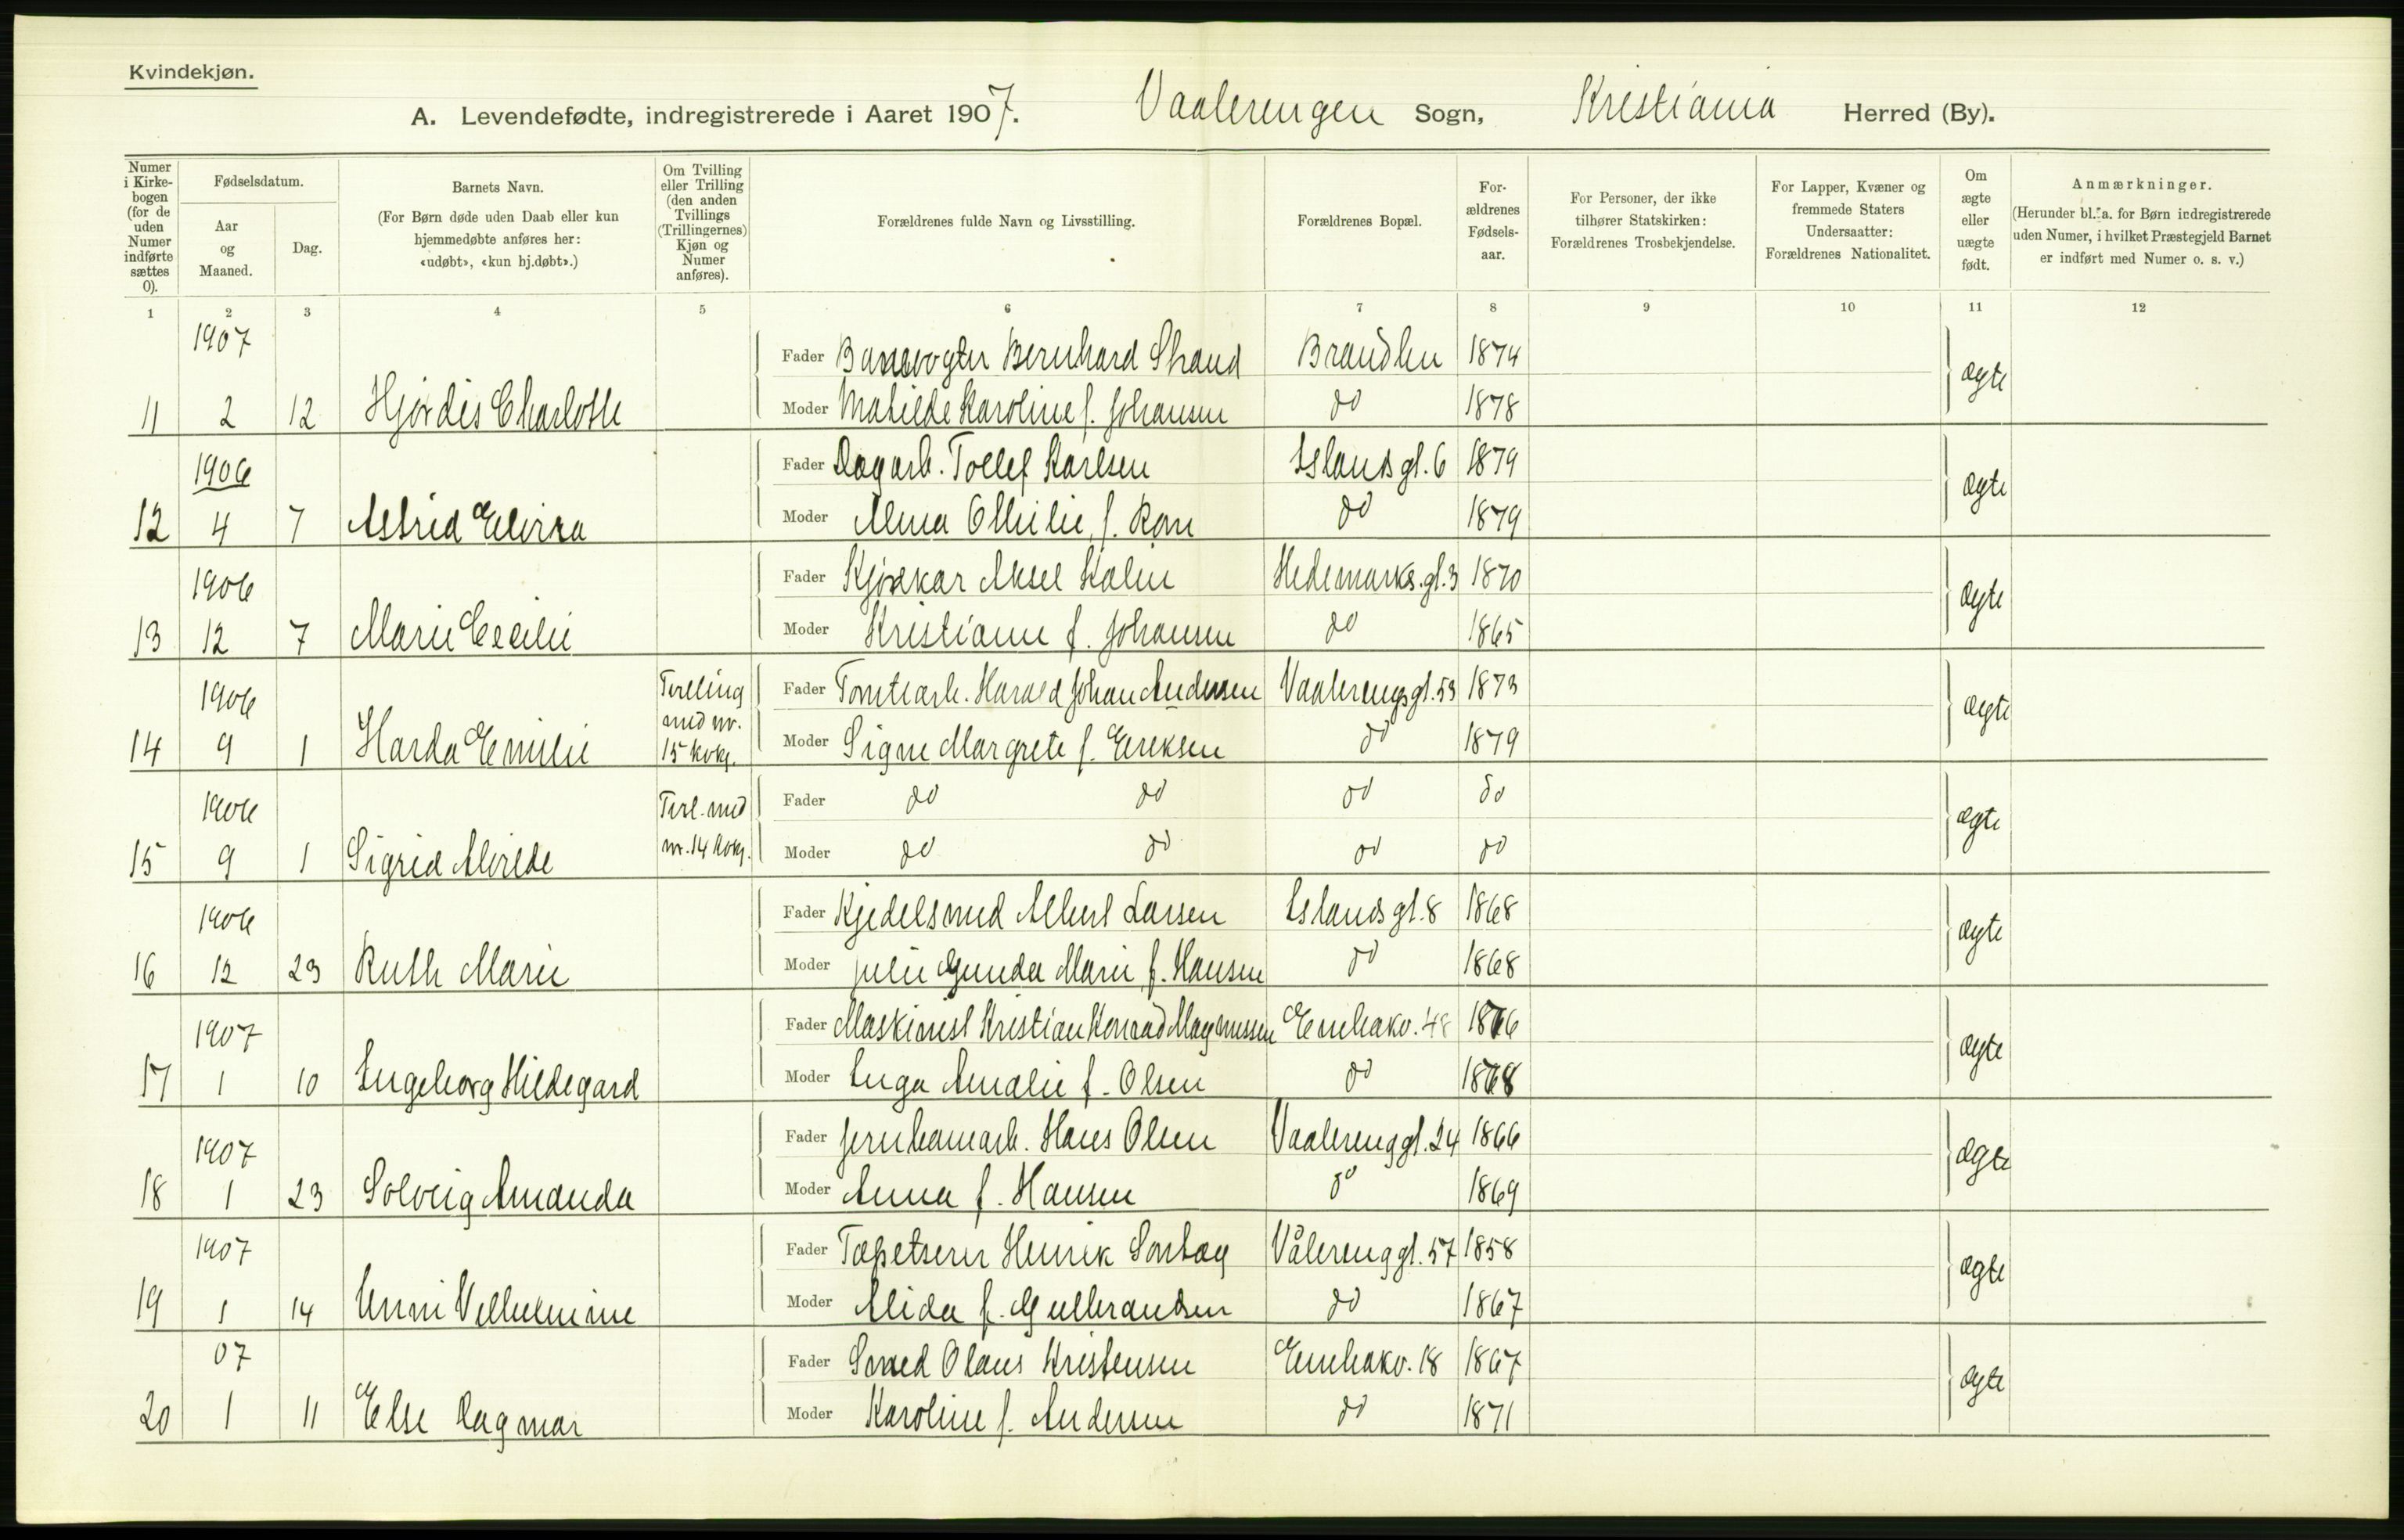 Kvindekjøn.
A. Levendefødte, indregistrerede i Aaret 1907. Vaalerengen Sogn, Kristiania Herred (By).
Numer i Kirkebogen (for de uden Numer indførte sættes 0).
Fødselsdatum.
Aar og Maaned.
Dag.
Barnets Navn.
(For Børn døde uden Daab eller kun hjemmedøbte anføres her: «udøbt», «kun hj.døbt».)
Om Tvilling eller Trilling (den anden Tvillings (Trillingernes) Kjøn og Numer anføres).
Forældrenes fulde Navn og Livsstilling.
Forældrenes Bopæl.
Forældrenes Fødselsaar.
For Personer, der ikke tilhører Statskirken: Forældrenes Trosbekjendelse.
For Lapper, Kvæner og fremmede Staters Undersaatter: Forældrenes Nationalitet.
Om ægte eller uægte født.
Anmærkninger.
(Herunder bl. a. for Børn indregistrerede uden Numer, i hvilket Præstegjeld Barnet er indført med Numer o. s. v.)
1 2 3 4 5 6 7 8 9 10 11 12
1907 Fader Banevogter Bernhard Strand Brandlien 1874 ægte
11 2 12 Hjørdis Charlotte Moder Matilde Karoline f. Johansen do 1878
1906 Fader Dagarb. Tollef Karlsen Islands gt. 6 1879 ægte
12 4 7 Astrid Elvira Moder Alma Othilie f. do 1879
1906 Fader Aksel Hedemarks.gt.3 1870 ægte
13 12 7 Marie Cecilie Moder Kristiane f. Johansen do 1865
1906 Tvilling med nr. 15 kvkj. Fader Tomtearb. Harald Johan Andersen Vaalerengsgt.53 1873 ægte
14 9 1 Harda Emilie Moder Signe Margrete f. Eriksen do 1879
1906 Tvil. med nr. 14 kvkj. Fader do do do do ægte
15 9 1 Sigrid Alvilde Moder do do do do
1906 Fader Kjedelsmed Albert Larsen Islands gt. 8 1868 ægte
16 12 23 Ruth Marie Moder Julie Gunda Marie f. Hansen do 1868
1907 Fader Maskinist Kristian Konrad Magnussen Enebakv. 48 1876 ægte
17 1 10 Ingeborg Hildegard Moder Inga Amalie f. Olsen do 1878
1907 Fader Jernbanearb. Hans Olsen Vaalerenggt. 24 1866 ægte
18 1 23 Solveig Amanda Moder Anna f. Hansen do 1869
1907 Fader Tapetserer Henrik Sontag Vålerenggt. 57 1858 ægte
19 1 14 Unni Vilhelmine Moder Alida f. Gulbrandsen do 1867
07 Fader Smed Olaus Kristensen Enebakv. 18 1867 ægte
20 1 11 Else Dagmar Moder Karoline f. Andersen do 1871